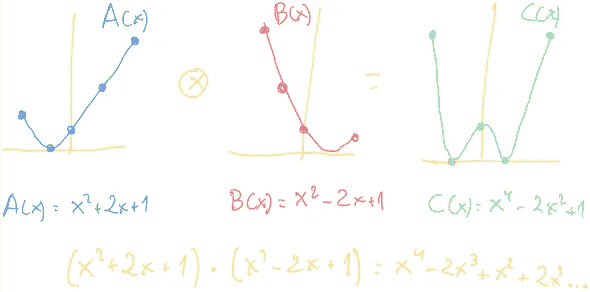 A(x) B(x) C(x)
⊗ =
A(x) = x² + 2x + 1 B(x) = x² - 2x + 1 C(x) = x⁴ - 2x² + 1
(x² + 2x + 1) · (x² - 2x + 1) = x⁴ - 2x³ + x² + 2x³...